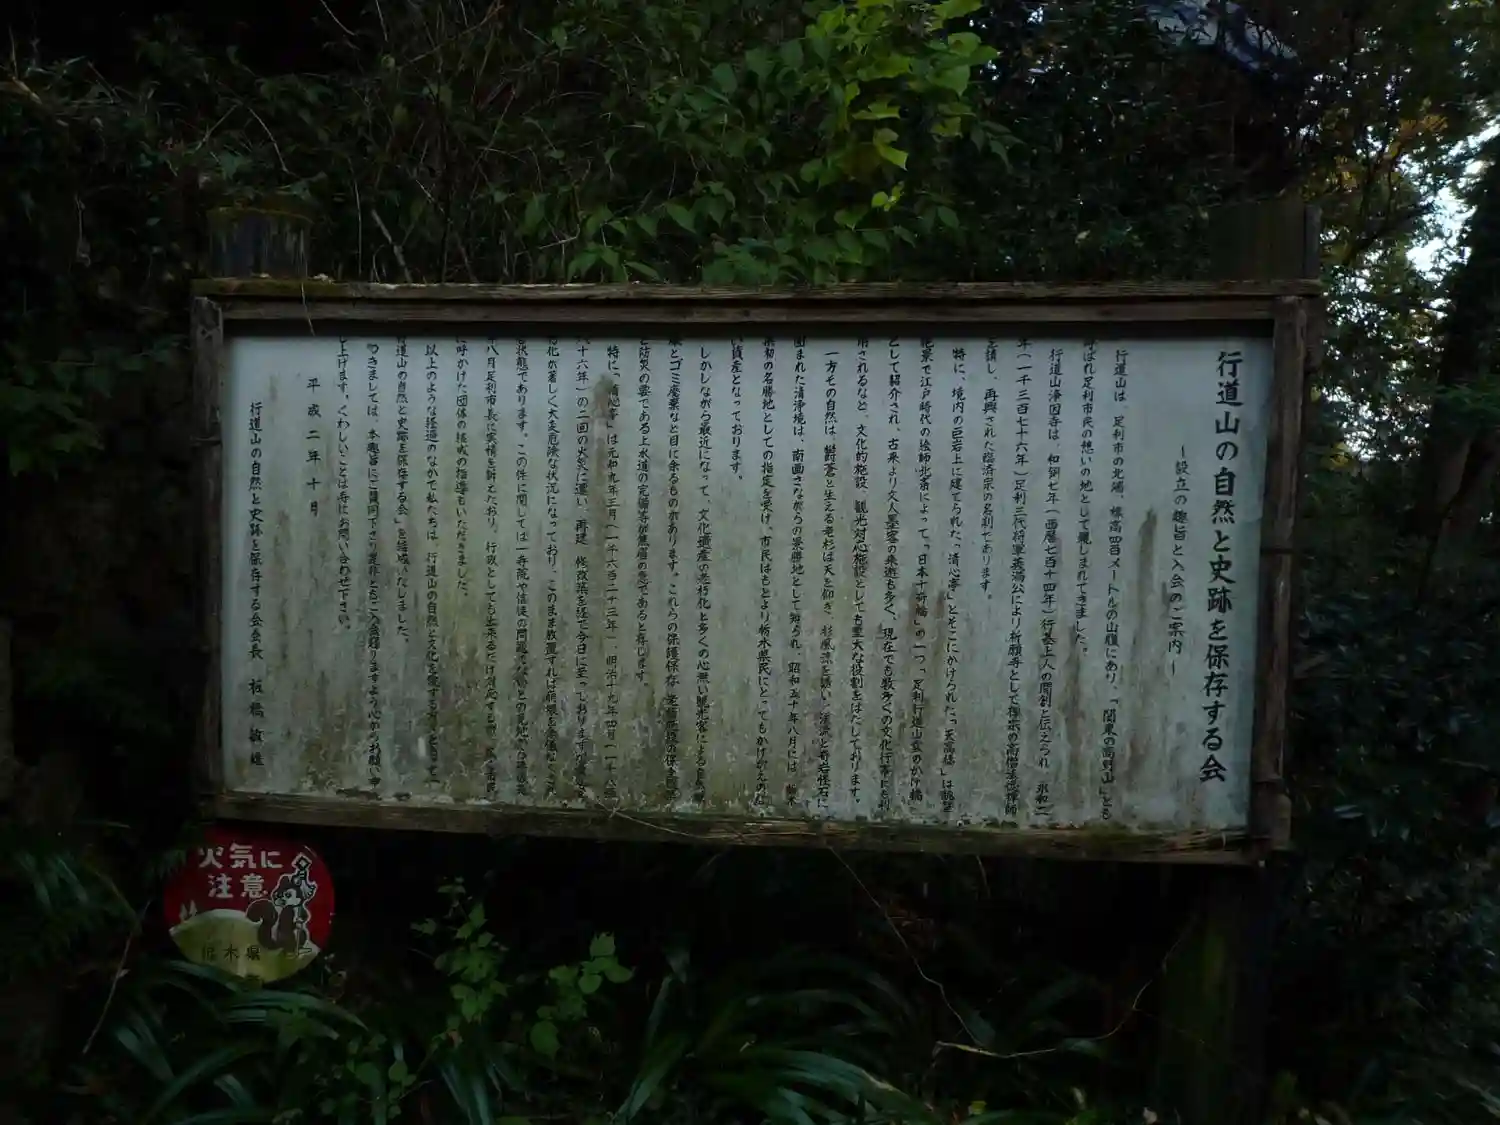 行道山の自然と史跡を保存する会
―設立の趣旨と入会のご案内―
行道山は、足利市の北端、標高四百メートルの山腹にあり、「関東の高野山」とも
呼ばれ足利市民の憩いの地として親しまれてきました。
行道山浄因寺は、和銅七年(西暦七百十四年)行基上人の開創と伝えられ、永和二
年(一千三百七十六年)足利三代将軍義満公により祈願寺として禅宗の高僧法徳禅師
を請し、再興された臨済宗の名刹であります。
特に、境内の巨岩上に建てられた、「清心亭」とそこにかけられた「天高橋」は眺望
絶景で江戸時代の絵師北斎によって「日本十奇橋」の一つ「足利行道山雲のかけ橋」
として紹介され、古来より文人墨客の来遊も多く、現在でも数多くの文化行事にも利
用されるなど、文化的施設、観光対応施設としても重大な役割をはたしております。
一方その自然は、鬱蒼と生える老杉は天を仰ぎ、杉風凉を誘い、渓流と奇岩怪石に
囲まれた清浄境は、南画さながらの景勝地として知られ、昭和五十年八月には、栃木
県初の名勝地としての指定を受け、市民はもとより栃木県民にとってもかけがえのな
い資産となっております。
しかしながら最近になって、文化遺産の老朽化と多くの心無い観光客による自然破
壊とゴミ廃棄など目に余るものがあります。これらの保護保存
と防災の要である上水道の完備等が焦眉の急であると存じます。
特に、「清心亭」は元和九年三月(一千六百二十三年)、明治十九年四月(一千八百
八十六年)の二回の火災に遭い、再建、修改築を経て今日に至っておりますが
朽化が著しく大変危険な状況になっており、このまま放置すれば崩壊を余儀なくされ
る状態であります。この件に関しては一寺院や信徒の問題でないとの見地から
年八月足利市長に実情を訴えたおり、行政としても出来るだけ対応する
に呼かけた団体の結成の指導もいただきました。
以上のような経過のなかで私たちは、行道山の自然と文化を愛する
行道山の自然と史跡を保存する会」を結成いたしました。
つきましては、本趣旨にご賛同下さり是非ともご入会賜りますよう心からお願い申
し上げます。くわしいことは寺にお問い合わせ下さい。
平成二年十月
行道山の自然と史跡を保存する会会長 板橋敏雄
火気に
注意
栃木県